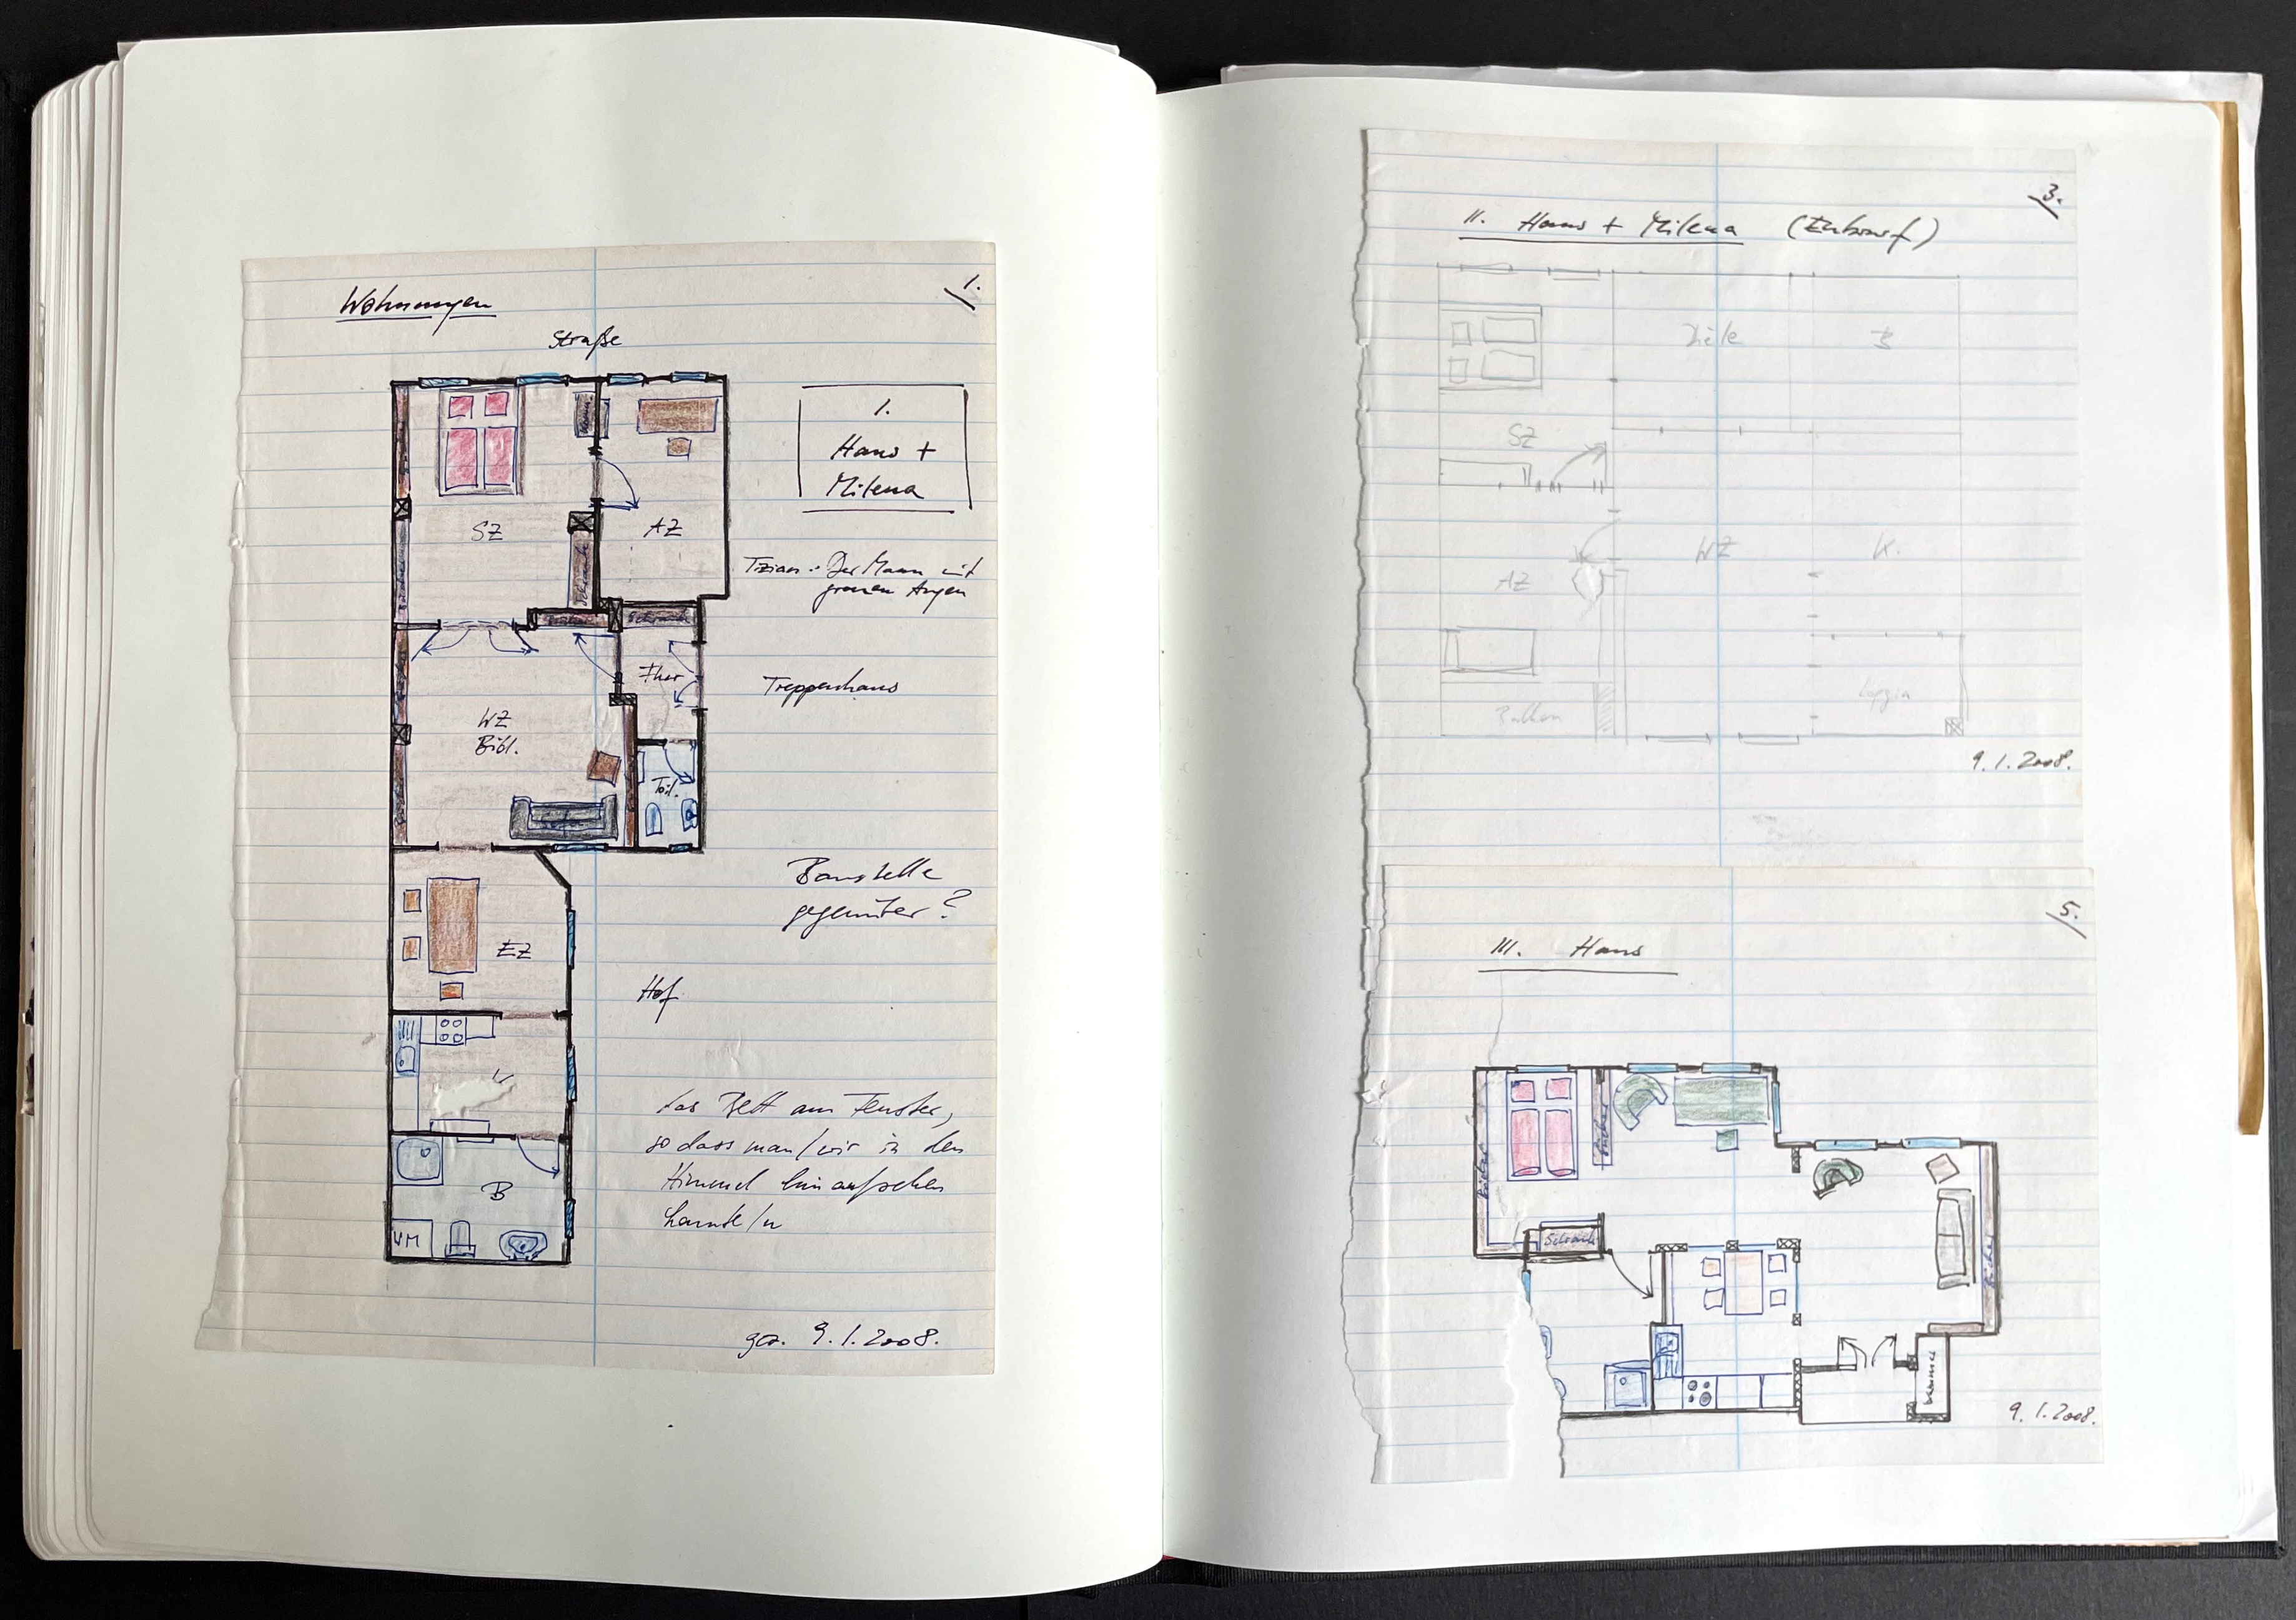 Wohnungen
1.
Straße
1.
Hans +
Milena
SZ
AZ
Schrank
Tizian: Der Mann mit
grauen Augen
Bücher
Schrank
Flur
Treppenhaus
WZ
Bibl.
Toil.
Baustelle
gegenüber?
EZ
Hof
K
das Bett am Fenster,
so dass man/wir in den
Himmel hinaufsehen
konnte/n
B
WM
gez. 9.1.2008.
3.
II. Hans + Milena (Entwurf)
Diele
B
SZ
WZ
K.
AZ
Balkon
Loggia
9.1.2008.
5.
III. Hans
Bücher
Bücher
Schrank
Bücher
Kammer
9.1.2008.